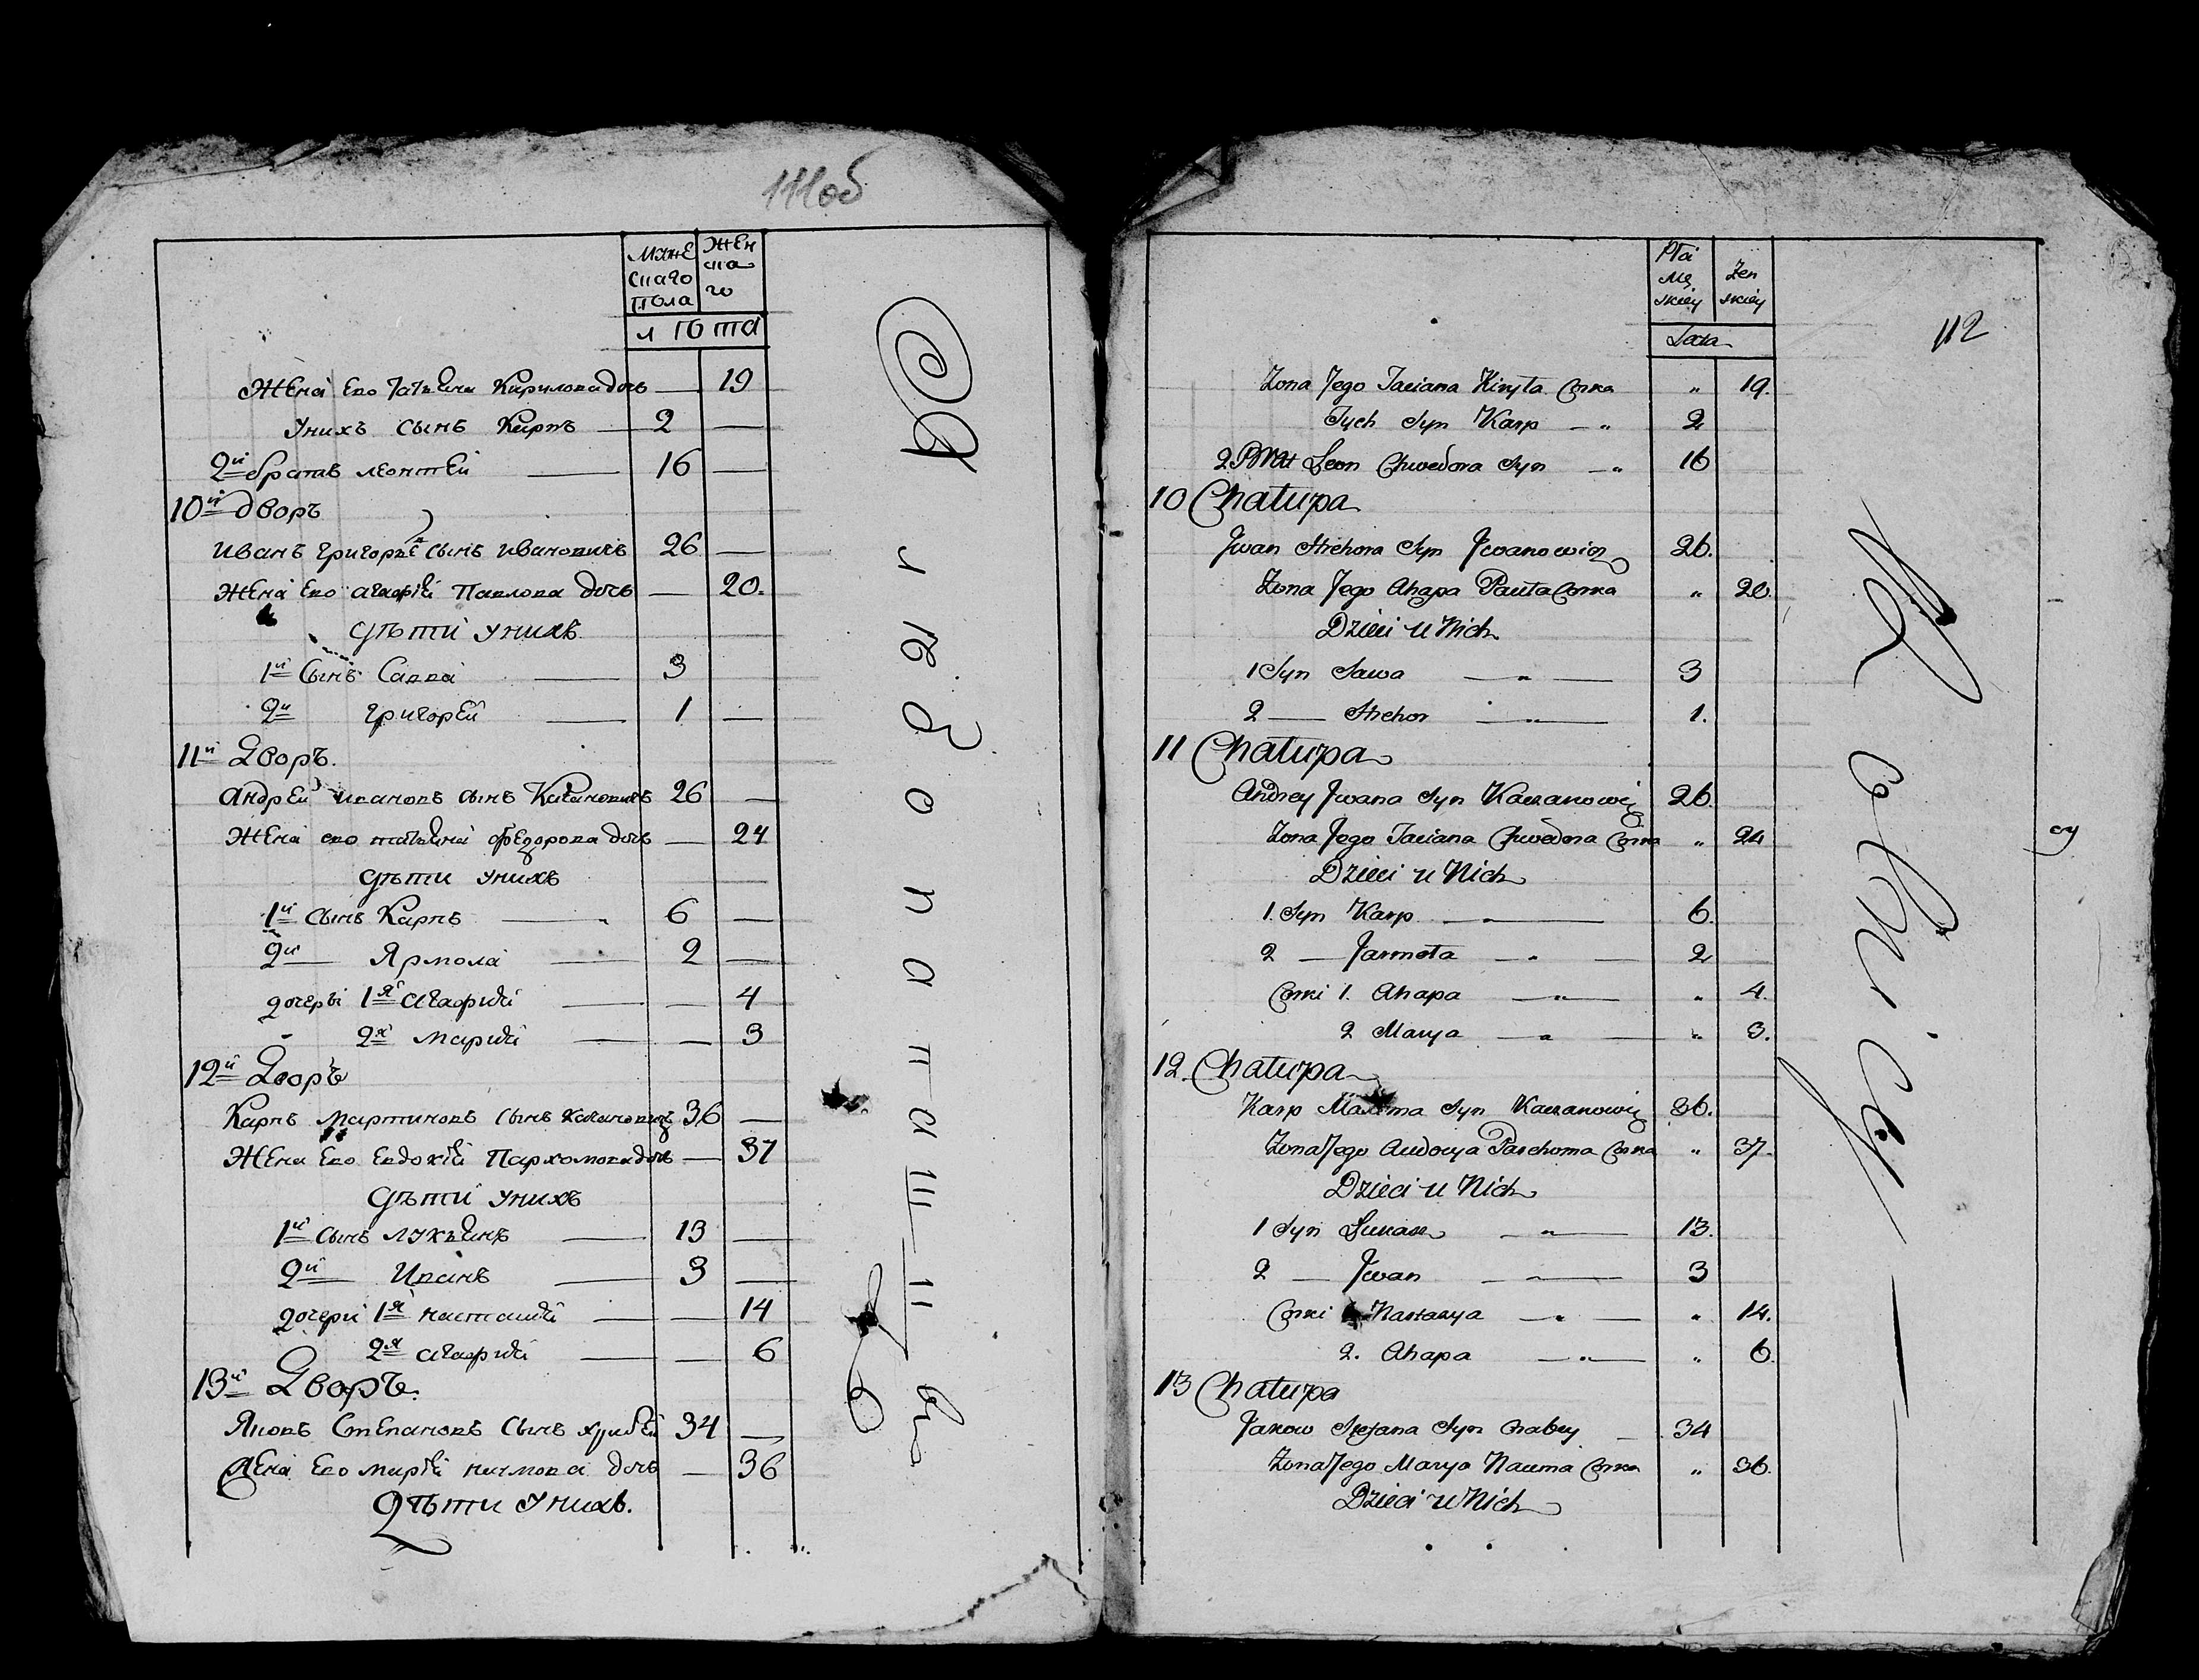 111об
Муже
скаго
пола
Жен
ска
го
лѣта
Жена Ево Татьяна Кирилова дочь — 19
У них сынъ Карпъ — 2 —
2й братъ леонтей — 16 —
10й дворъ
Иванъ григорьевъ сынъ Ивановичъ 26 —
Жена Ево агафія Павлова дочь — 20.
Дѣти у нихъ
1й Сынъ Савва — 3
2й григорей — 1 —
11й Дворъ.
Андрей Ивановъ сынъ 26 —
Жена ево татьяна федорова дочь — 24
Дѣти у нихъ
1й сынъ Карпъ — 6 —
2й — Ярмола — 2 —
дочери 1я агафия — — 4
2я Мария — — 3
12й Дворъ
Карпъ Мартиновъ сынъ 36 —
Жена Ево Евдокія Пархомова дочь — 37
Дѣти у нихъ
1й сынъ лукьянъ — 13 —
2й — Иванъ — 3 —
дочери 1я настасия — — 14
2я агафия — — 6
13й Дворъ.
Яковъ Степановъ Сынъ 34 —
Жена Ево Марія наумова дочь — 36
Дѣти У нихъ.
112
Płci
Mę
skiey
Żen
skiey
Lata
Żona Jego Taciana Kiryła Corka „ 19.
Tych Syn Karp — „ 2
2 Brat Leon Chwedora Syn — „ 16
10 Chałupa
Jwan Hrehora Syn Jwanowicz 26.
Żona Jego Ahapa Pawła Corka „ 20.
Dzieci u Nich
1 Syn Sawa — „ — 3
2 — Hrehor — „ — 1.
11 Chałupa
Andrey Jwana Syn Kaczanowicz 26.
Żona Jego Taciana Chwedora Corka „ 24
Dzieci u Nich
1. Syn Karp — „ — 6.
2 — Jarmoła — „ — 2
Corki 1. Ahapa — „ — „ 4.
2 Marya — „ — „ 3.
12 Chałupa
Karp Syn Kaczanowicz 36.
Żona Jego Audocya Parchoma Corka „ 37.
Dzieci u Nich
1 Syn Łukasz — „ — 13.
2 — Jwan — „ — 3
Corki Nastasya — „ — „ 14.
2. Ahapa — „ — „ 6.
13 Chałupa
Jakow Stefana Syn 34
Żona Jego Marya Nauma Corka „ 36.
Dzieci u Nich